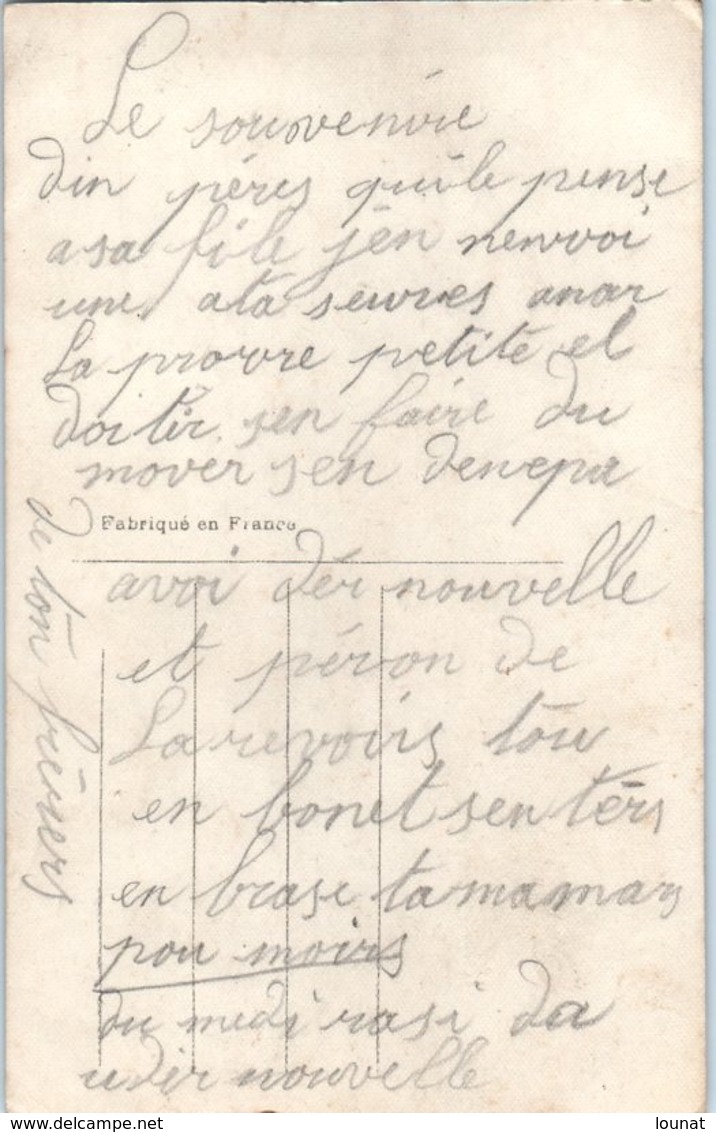 Le souvenire
din péres quile pense
a sa file j'en nenvoi
une ata seuvres anar
La provre petite el
doitir sen faire du
mover sen denepa
Fabriqué en France
avoi dér nouvelle
et péron de
La revoirs tou
en bonet senters
en brase ta maman
pou moirs
du medi rasi da
uder nouvelle
de ton
lounat